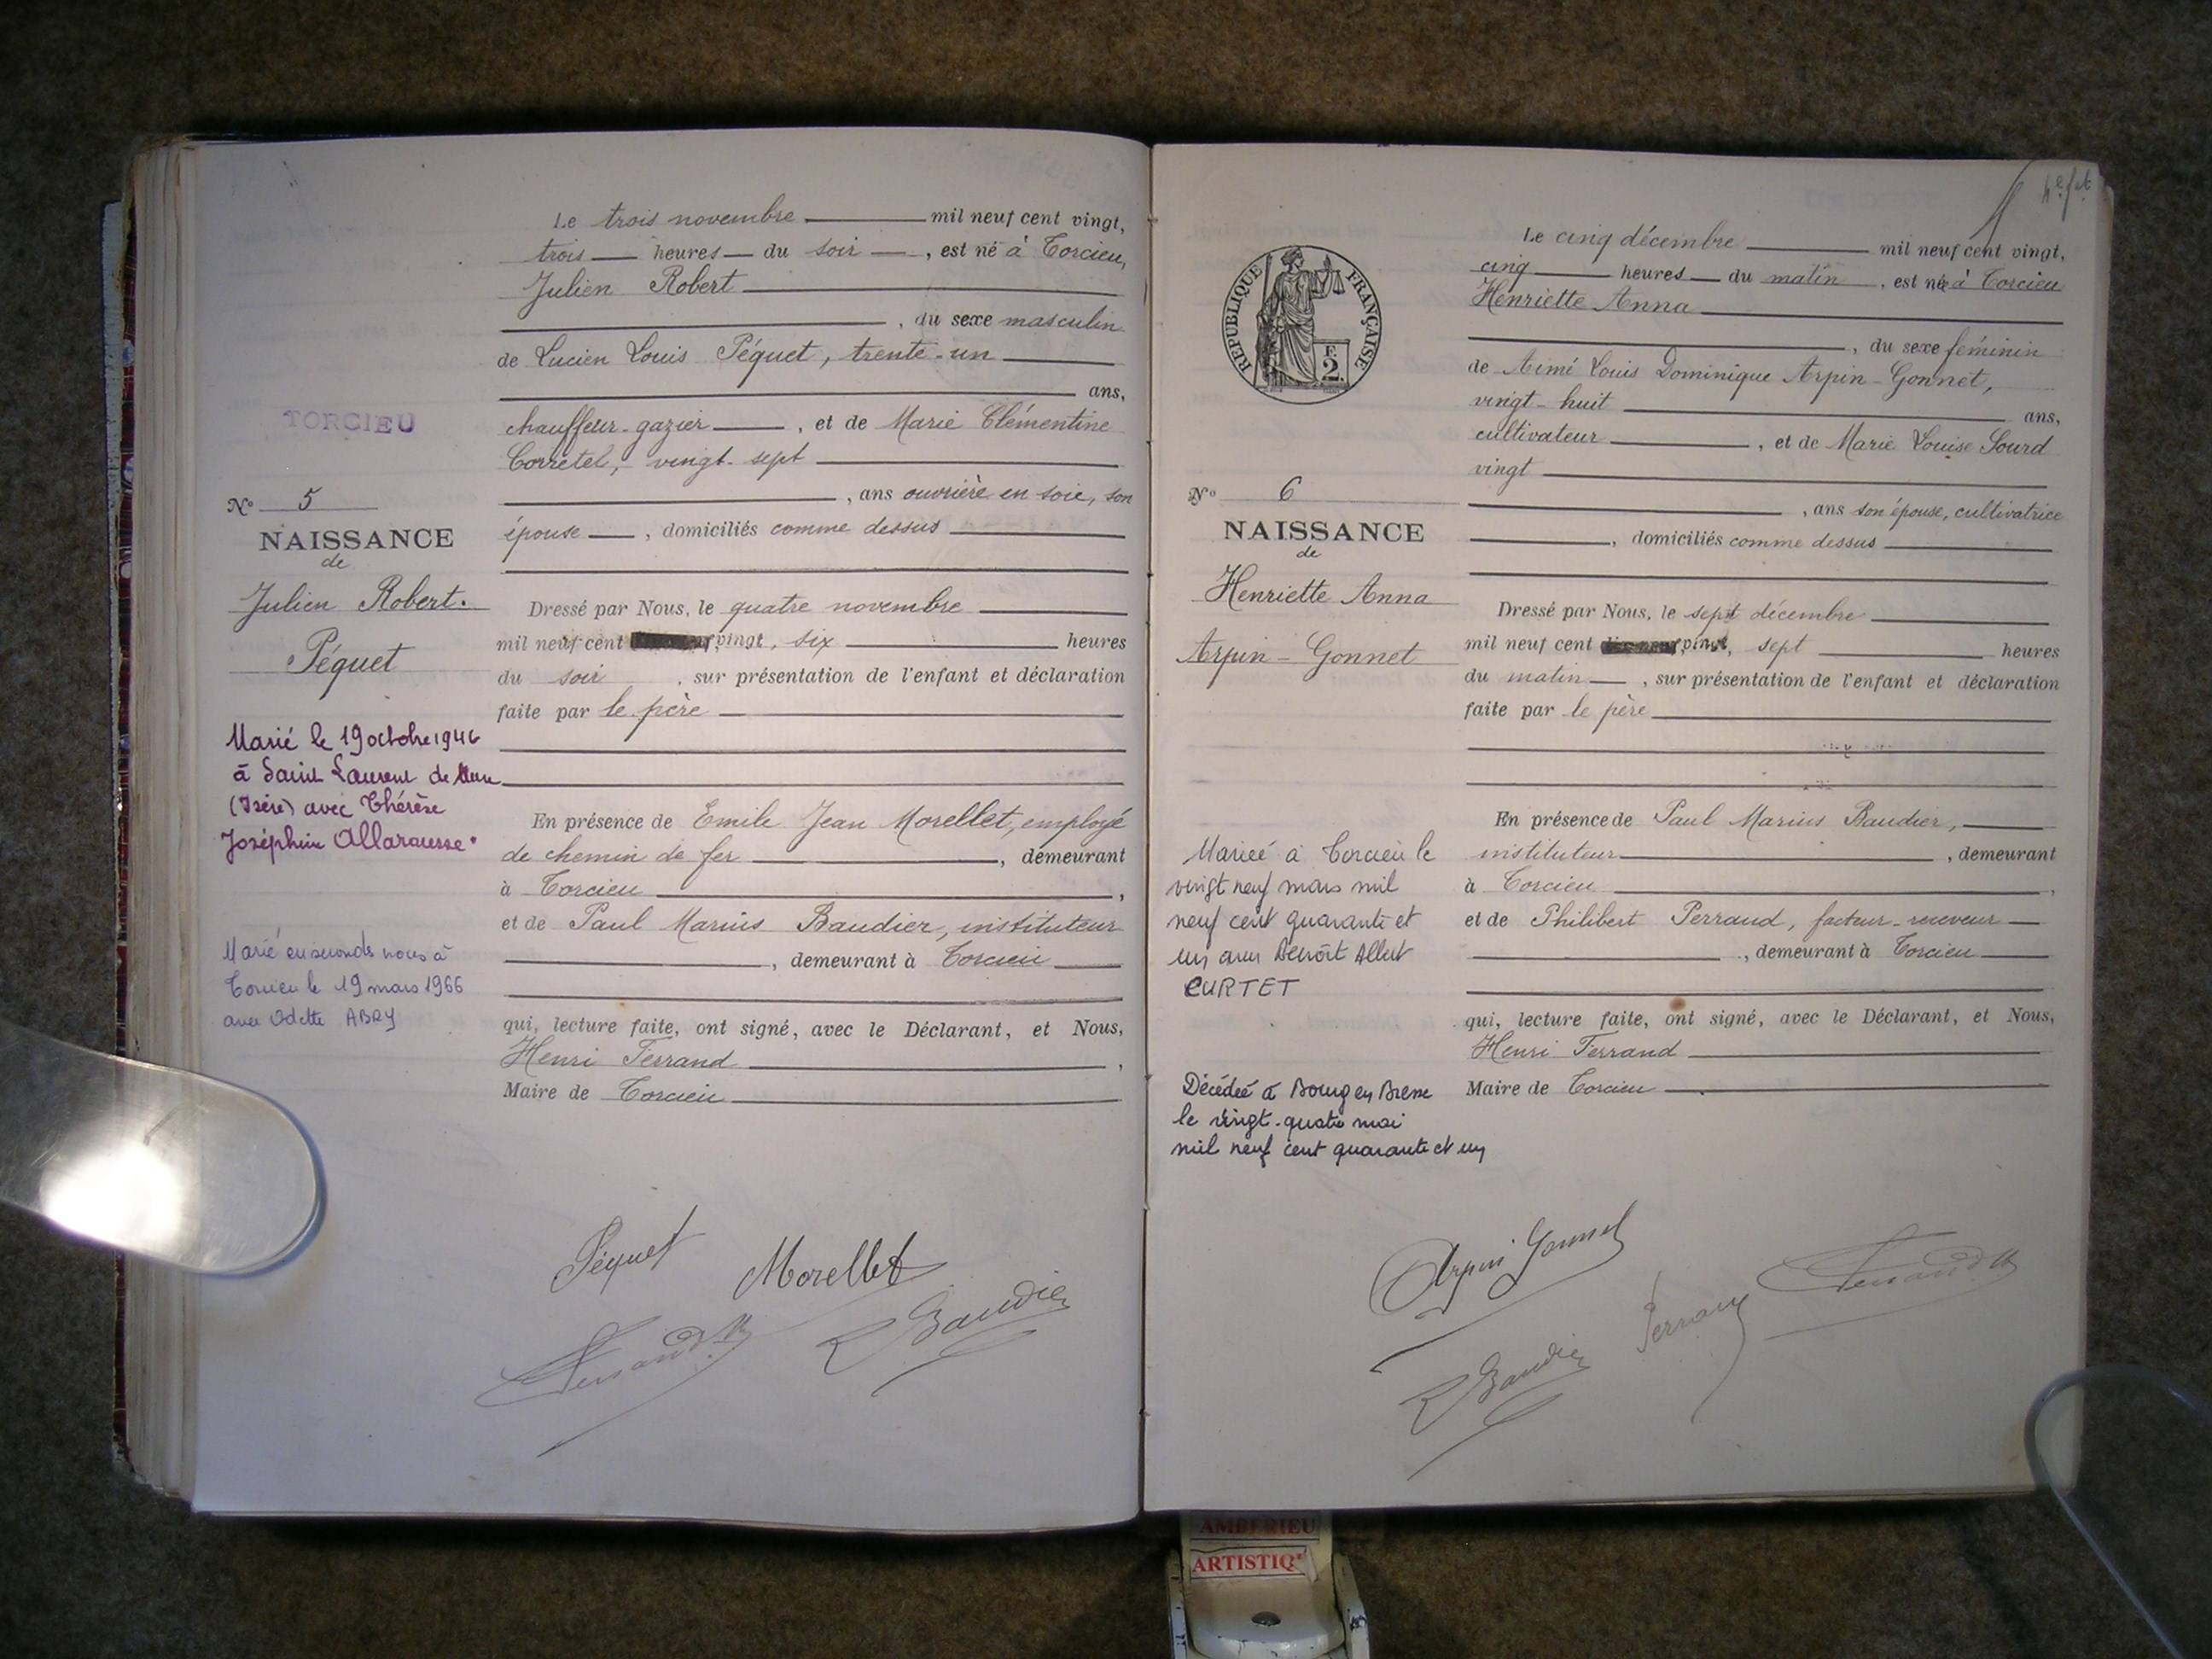 Le trois novembre mil neuf cent vingt,
trois heures du soir, est né à Torcieu,
Julien Robert
, du sexe masculin
de Lucien Louis Péquet, trente-un
ans,
chauffeur-gazier, et de Marie Clémentine
Corretel, vingt-sept
, ans ouvrière en soie, son
épouse, domiciliés comme dessus
TORCIEU
N° 5
NAISSANCE
de
Julien Robert.
Péquet
Dressé par Nous, le quatre novembre
mil neuf cent vingt, six heures
du soir, sur présentation de l'enfant et déclaration
faite par le père
Marié le 19 octobre 1946
à Saint Laurent de Mure
(Isère) avec Thérèse
Joséphine
En présence de Emile Jean Morellet, employé
de chemin de fer, demeurant
à Torcieu,
et de Paul Marius Baudier, instituteur
, demeurant à Torcieu
Marié en secondes noces à
Torcieu le 19 mars 1966
avec Odette ABRY
qui, lecture faite, ont signé, avec le Déclarant, et Nous,
Henri Ferrand,
Maire de Torcieu
Péquet
Morellet
Ferrand
Baudier
RÉPUBLIQUE FRANÇAISE
F.
2.
Le cinq décembre mil neuf cent vingt,
cinq heures du matin, est née à Torcieu
Henriette Anna
, du sexe féminin
de Aimé Louis Dominique Arpin-Gonnet,
vingt-huit ans,
cultivateur, et de Marie Louise Sourd
vingt
, ans son épouse, cultivatrice
, domiciliés comme dessus
N° 6
NAISSANCE
de
Henriette Anna
Arpin-Gonnet
Dressé par Nous, le sept décembre
mil neuf cent vingt, sept heures
du matin, sur présentation de l'enfant et déclaration
faite par le père
En présence de Paul Marius Baudier,
instituteur, demeurant
à Torcieu,
et de Philibert Perraud, facteur-receveur
, demeurant à Torcieu
Mariée à Torcieu le
vingt neuf mars mil
neuf cent quarante et
un avec Benoît Albert
CURTET
qui, lecture faite, ont signé, avec le Déclarant, et Nous,
Henri Ferrand
Maire de Torcieu
Décédée à Bourg en Bresse
le vingt-quatre mai
mil neuf cent quarante et un
Arpin Gonnet
Ferrand
Perraud
Baudier
AMBERIEU
ARTISTIQ